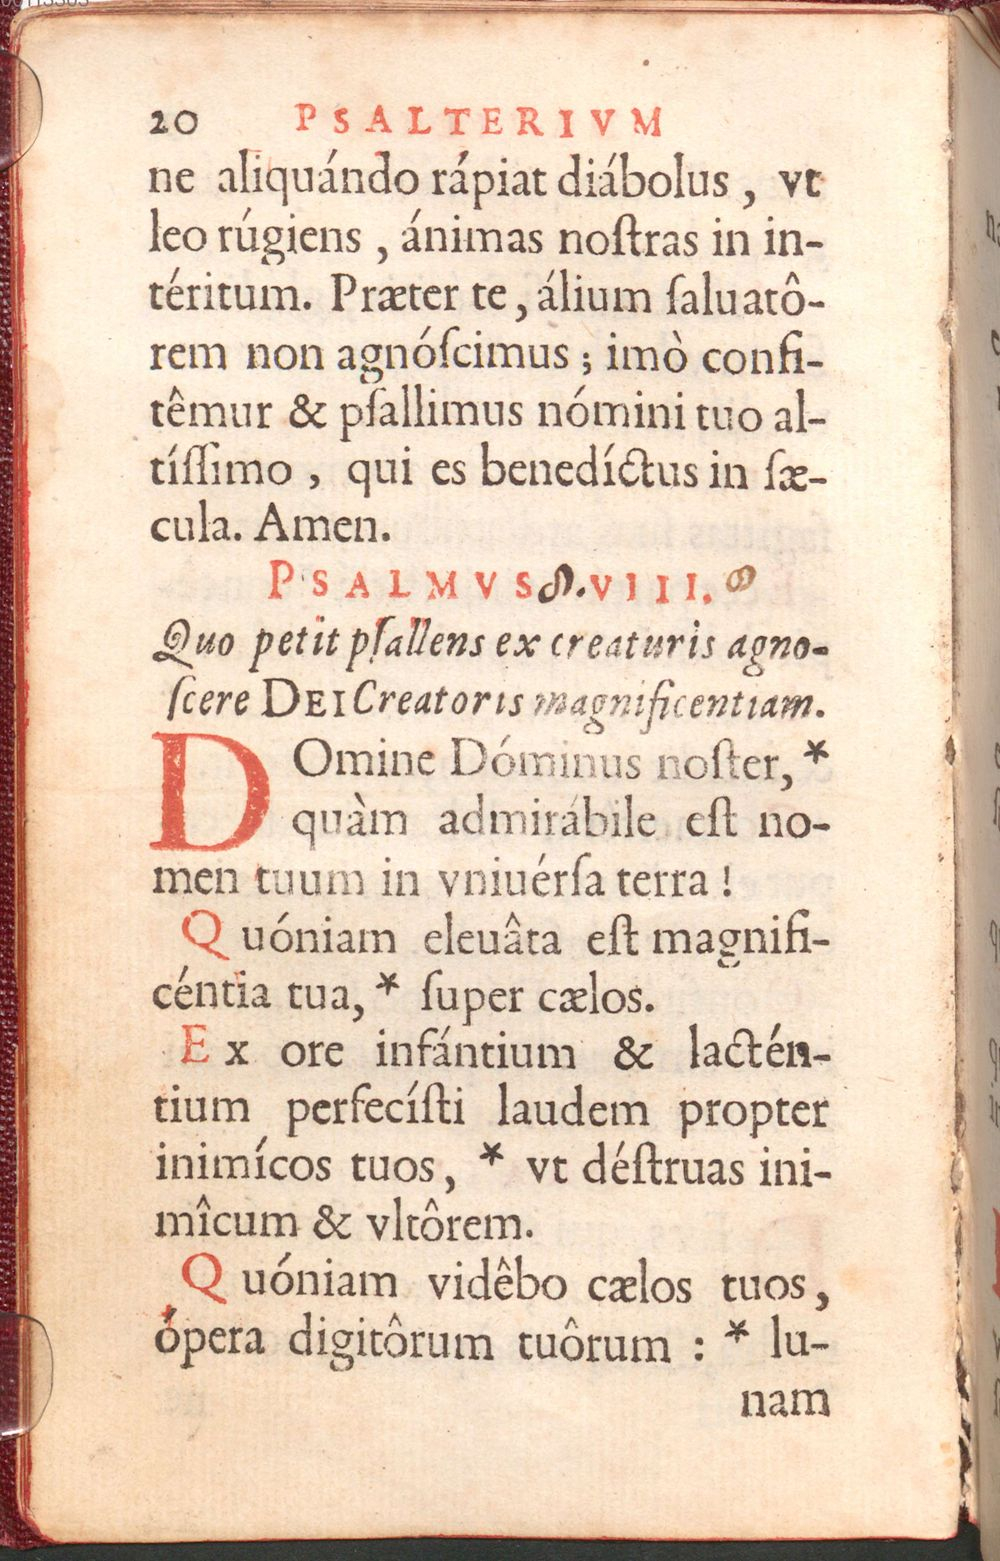 20 PSALTERIVM
ne aliquándo rápiat diábolus, vt
leo rúgiens, ánimas noſtras in in-
téritum. Præter te, álium ſaluatô-
rem non agnóſcimus; imò confi-
têmur & pſallimus nómini tuo al-
tíſſimo, qui es benedíctus in ſæ-
cula. Amen.
PSALMVS VIII.
Quo petit pſallens ex creaturis agno-
ſcere DEI Creatoris magnificentiam.
DOmine Dóminus noſter, *
quàm admirábile eſt no-
men tuum in vniuérſa terra!
Quóniam eleuâta eſt magnifi-
céntia tua, * ſuper cælos.
Ex ore infántium & lactén-
tium perfecíſti laudem propter
inimícos tuos, * vt déſtruas ini-
mîcum & vltôrem.
Quóniam vidêbo cælos tuos,
ópera digitôrum tuôrum : * lu-
nam